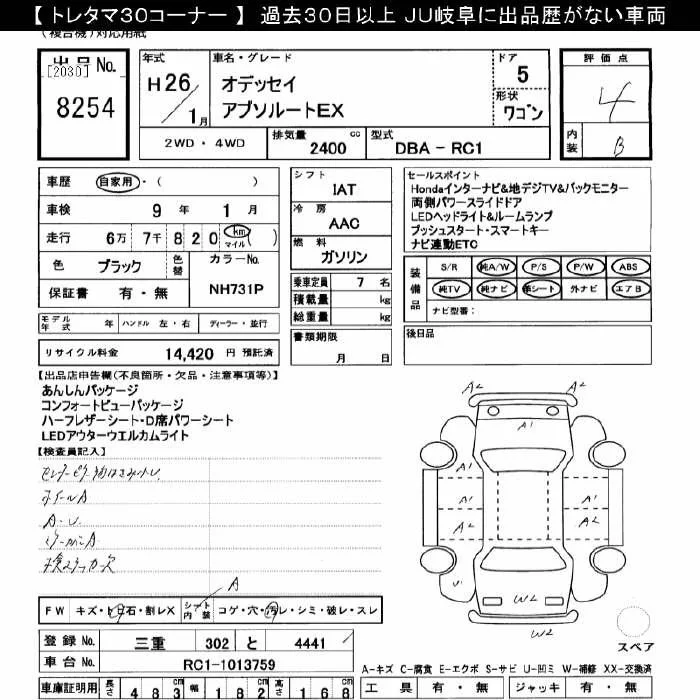 【 トレタマ30コーナー 】 過去30日以上 JU岐阜に出品歴がない車両
(複合機)対応用紙
出品No.
[2030]
8254
年式
H26/1月
車名・グレード
オデッセイ
アブソルートEX
ドア
5
形状
ワゴン
評価点
4
内装
B
2WD・4WD
排気量 2400 cc
型式 DBA-RC1
車歴 自家用・( )
車検 9年 1月
走行 6万 7千 820 km マイル ( )
色 ブラック 色替 カラーNo.
保証書 有・無 NH731P
シフト
IAT
冷房
AAC
燃料
ガソリン
乗車定員 7 名
積載量 kg
総重量 kg
セールスポイント
Hondaインターナビ&地デジTV&バックモニター
両側パワースライドドア
LEDヘッドライト&ルームランプ
プッシュスタート・スマートキー
ナビ連動ETC
装備品
S/R 純A/W P/S P/W ABS
純TV 純ナビ 革シート 外ナビ エアB
ナビ型番:
モデル年式 年 ハンドル 左・右 ディーラー・並行
書類期限
月 日
後日品
リサイクル料金 14,420 円 預託済
【出品店申告欄(不良箇所・欠品・注意事項等)】
あんしんパッケージ
コンフォートビューパッケージ
ハーフレザーシート・D席パワーシート
LEDアウターウエルカムライト
【検査員記入】
ホイールA
A・U
A
FW キズ・ト 石・割レX シート内装 コゲ・穴・汚レ・シミ・破レ・スレ
A2 A2
A1
A1 A1
A2 A2
U
W2
W2
スペア
登録No. 三重 302 と 4441
車台No. RC1-1013759
A-キズ C-腐食 E-エクボ S-サビ U-凹ミ W-補修 XX-交換済
車庫証明用 長さ 483 cm 幅 182 cm 高さ 168 cm
工具 有・無 ジャッキ 有・無